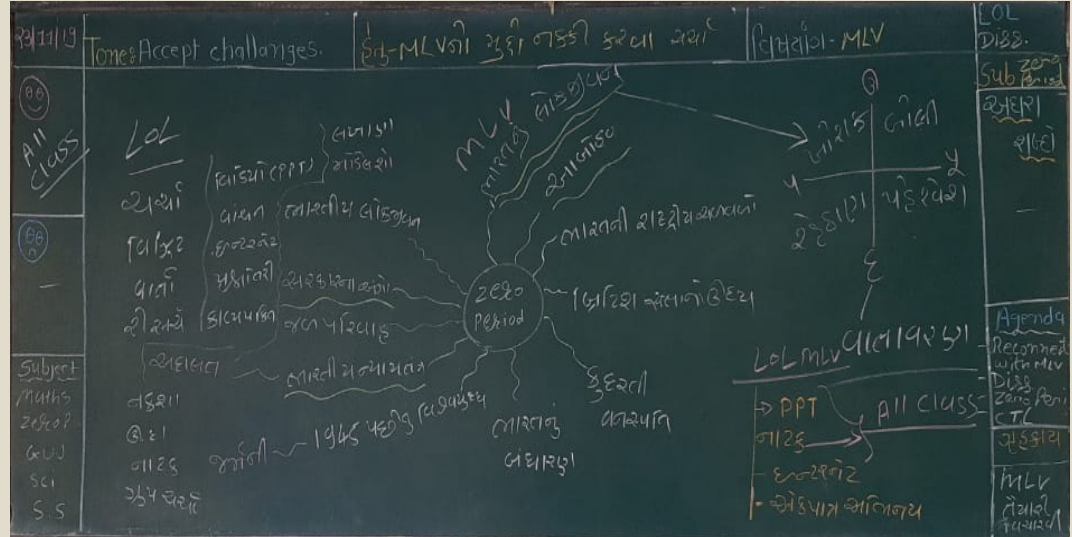 23/11/19
Tone: Accept challanges.
હેતુ-MLVની મુદ્દા નક્કી કરવા ચર્ચા
વિષયાંગ-MLV
LOL
Diss.
Sub zero Period
અઘરા
શબ્દો
All
Class
Subject
Maths
zero?
GUJ
Sci
S S
LOL
ચર્ચા
વિઝિટ
વાર્તા
રીસર્ચ
અદાલત
નકશા
ઊ.દા
નાટક
ગ્રુપ ચર્ચા
વિડિયો (PPT)
વાંચન
ઇન્ટરનેટ
પ્રશ્નોતરી
કાવ્યપંક્તિ
લખાણ
ભારતીય લોકજીવન
સરકારના અંગો
જળ પરિવાહ
ભારતીય ન્યાયતંત્ર
જર્મની
1945 પછીનું વિશ્વયુધ્ધ
zero
period
MLV
ભારતનું લોકજીવન
આબોહવા
ભારતની રાષ્ટ્રીય ચળવળો
બ્રિટિશ સત્તાનો ઊદય
કુદરતી
વનસ્પતિ
ભારતનું
બંધારણ
ઉ
ખોરાક
બોલી
પ
પૂ
રહેઠાણ
પહેરવેશ
દ
વાતાવરણ
LOL MLV
→ PPT
નાટક
- ઇન્ટરનેટ
- એકપાત્ર અભિનય
All Class
Agenda
Reconnect
with MLV
Diss
Zero Peri
CTL
ગૃહકાર્ય
MLV
તૈયારી